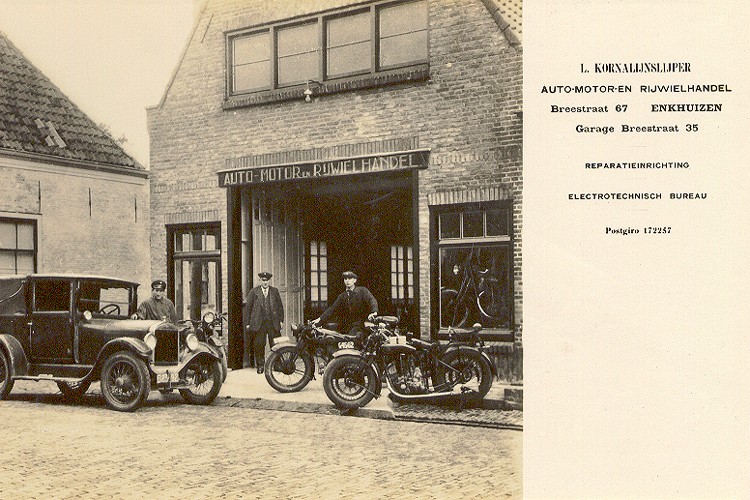 AUTO-MOTOR EN RIJWIELHANDEL
L. KORNALIJNSLIJPER
AUTO-MOTOR-EN RIJWIELHANDEL
Breestraat 67 ENKHUIZEN
Garage Breestraat 35
REPARATIEINRICHTING
ELECTROTECHNISCH BUREAU
Postgiro 172257